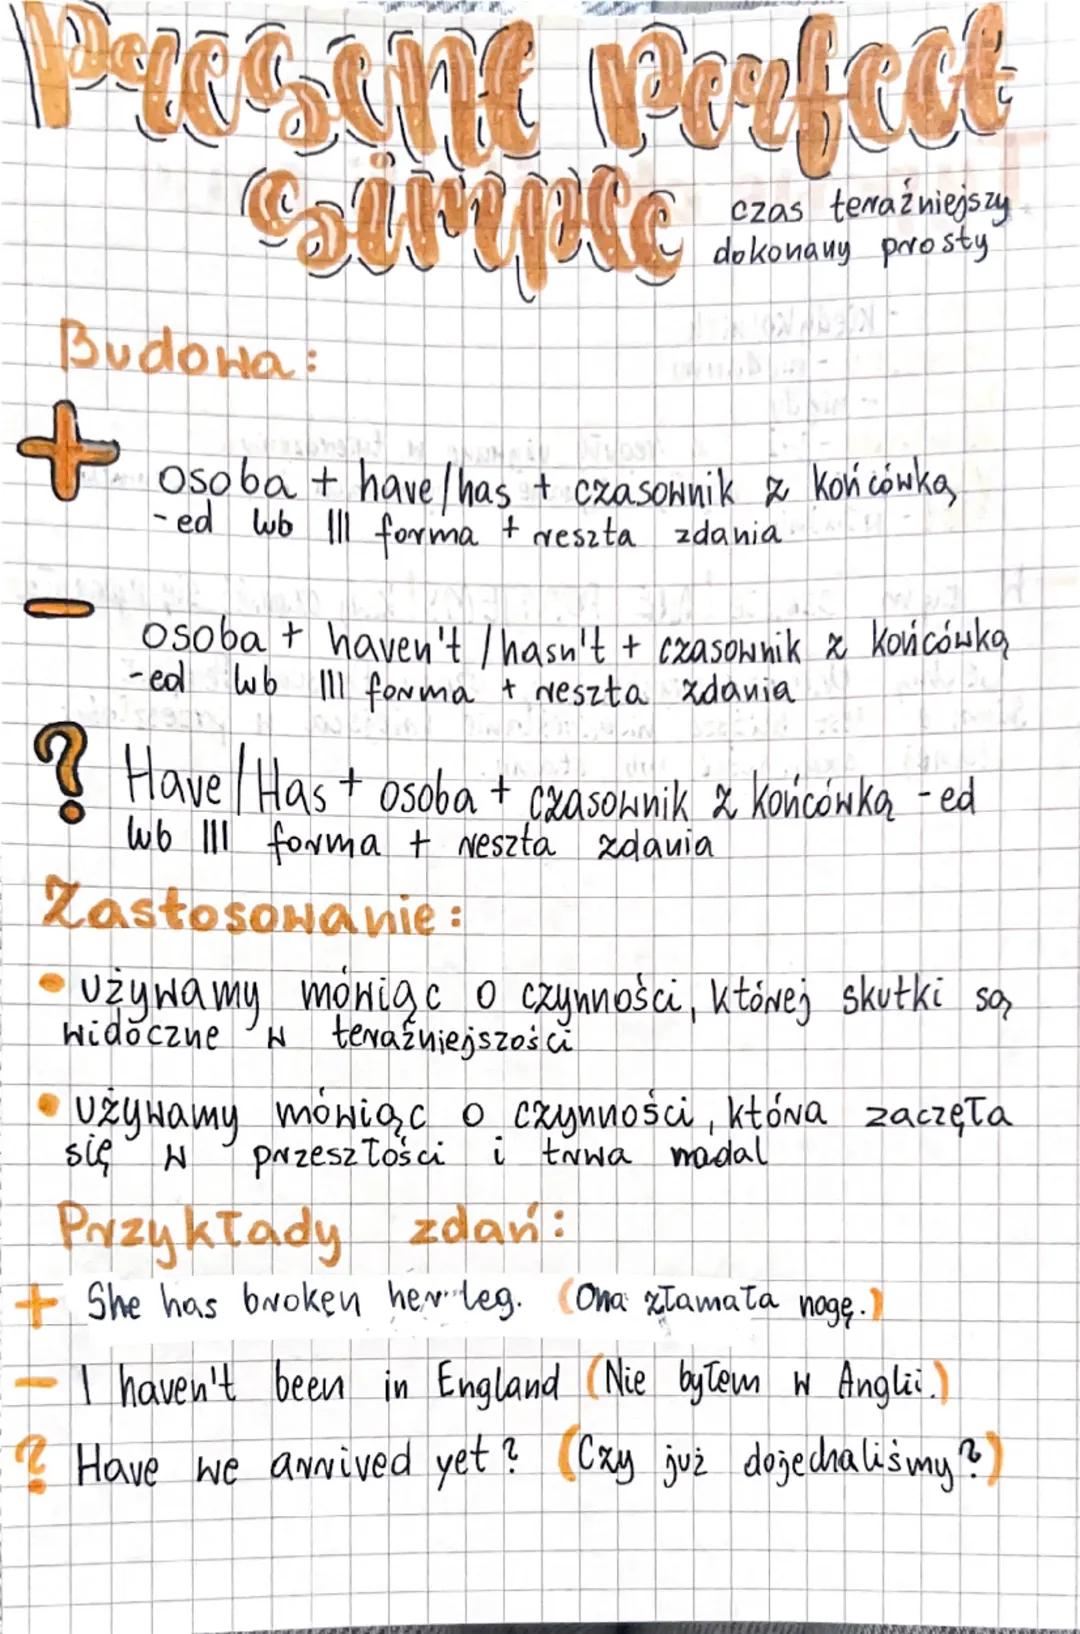 Present Perfect
Simple
czas teraźniejszy
dokonany prosty
Budowa:
+
osoba + have/has + czasownik z końcówką
-ed lub III forma + reszta zdania
-
osoba + haven't / hasn't + czasownik z końcówką
-ed lub III forma + reszta zdania
? Have/Has + osoba + czasownik z końcówką -ed
lub III forma + reszta zdania
Zastosowanie:
• używamy mówiąc o czynności, której skutki są
widoczne w teraźniejszości
• używamy mówiąc o czynności, która zaczęła
się w przeszłości i trwa nadal
Przykłady zdań:
+ She has broken her leg. (Ona złamała nogę.)
- I haven't been in England (Nie byłem w Anglii.)
? Have we arrived yet? (Czy już dojechaliśmy?)